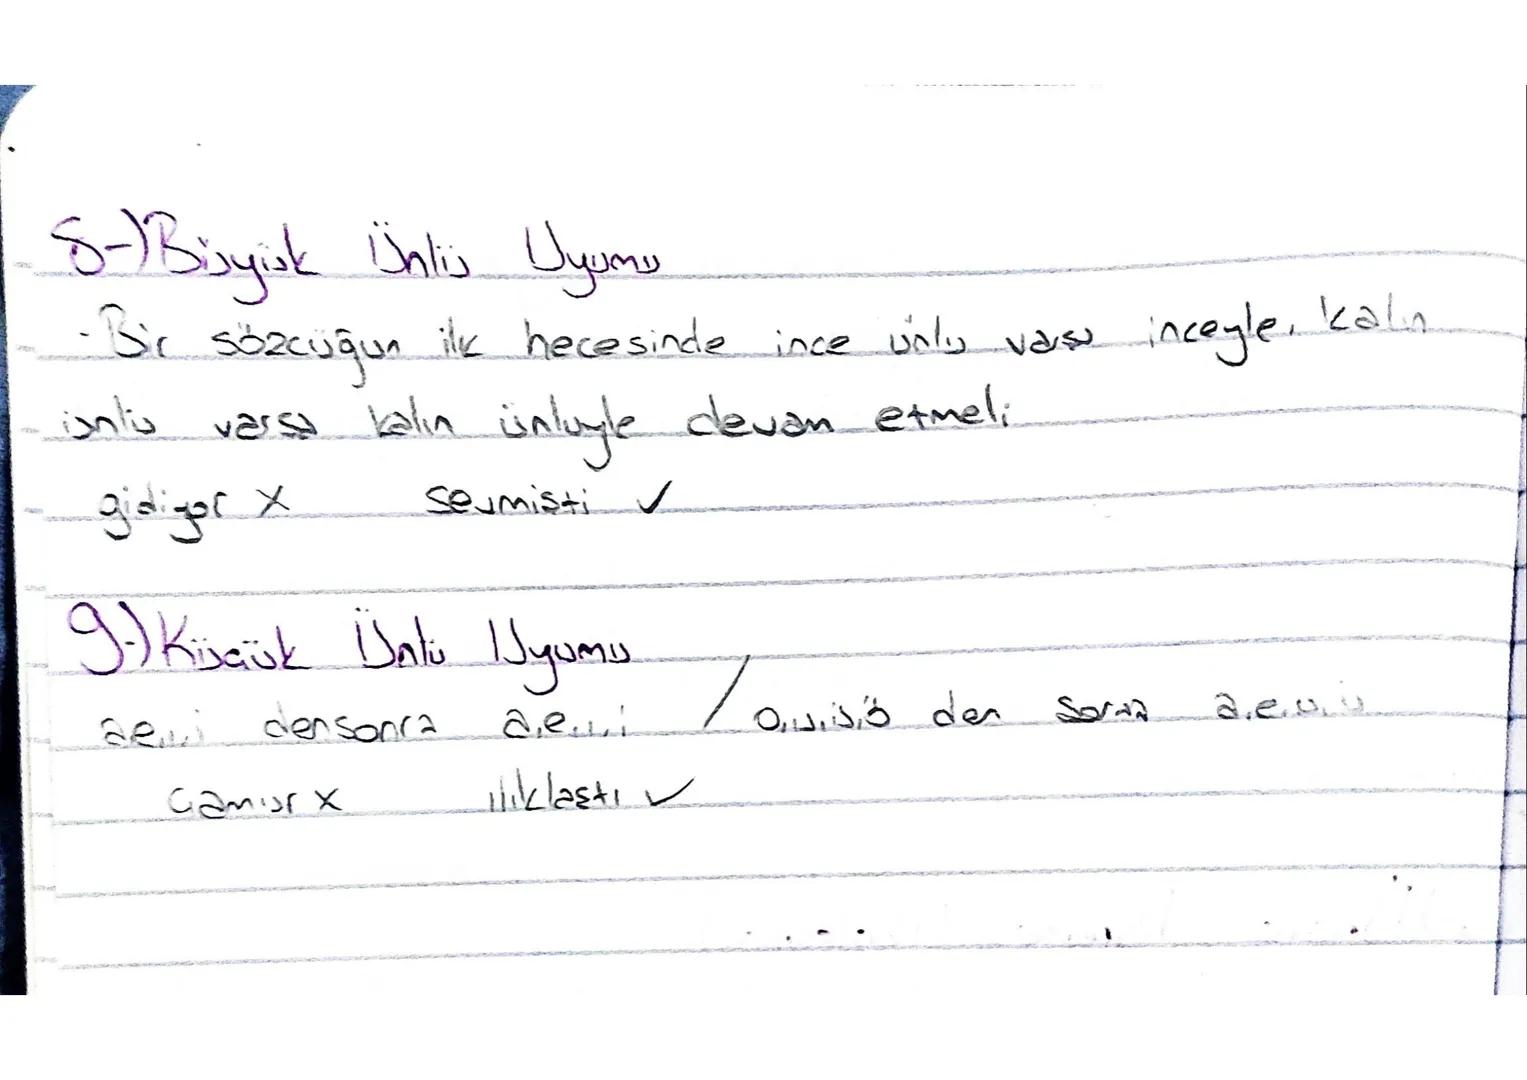 8-) Büyük Ünlü Uyumu
- Bir sözcüğün ilk hecesinde ince ünlü varsa inceyle, kalın
ünlü varsa kalın ünlüyle devam etmeli
gidiyor X sevmişti ✓
9-) Küçük Ünlü Uyumu
a,e,ı,i den sonra a,e,ı,i / o,u,ü,ö den sonra a,e,u,ü
Çamur X ılıklaştı ✓